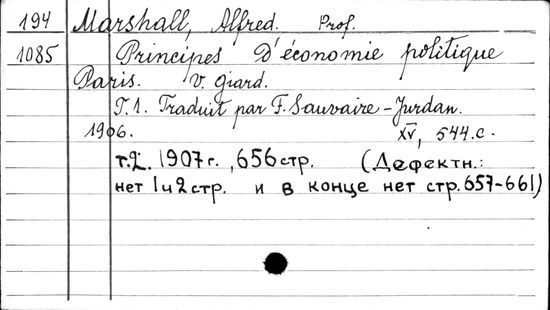 194 Marshall, Alfred. Prof.
1085 Principes d'économie politique
Paris. V. Giard.
T.1. Traduit par F. Sauvaire-Jurdan.
1906. XV, 544.c.
т.2. 1907г., 656 стр. (Дефектн.:
нет 1 и 2 стр. и в конце нет стр. 657-661)